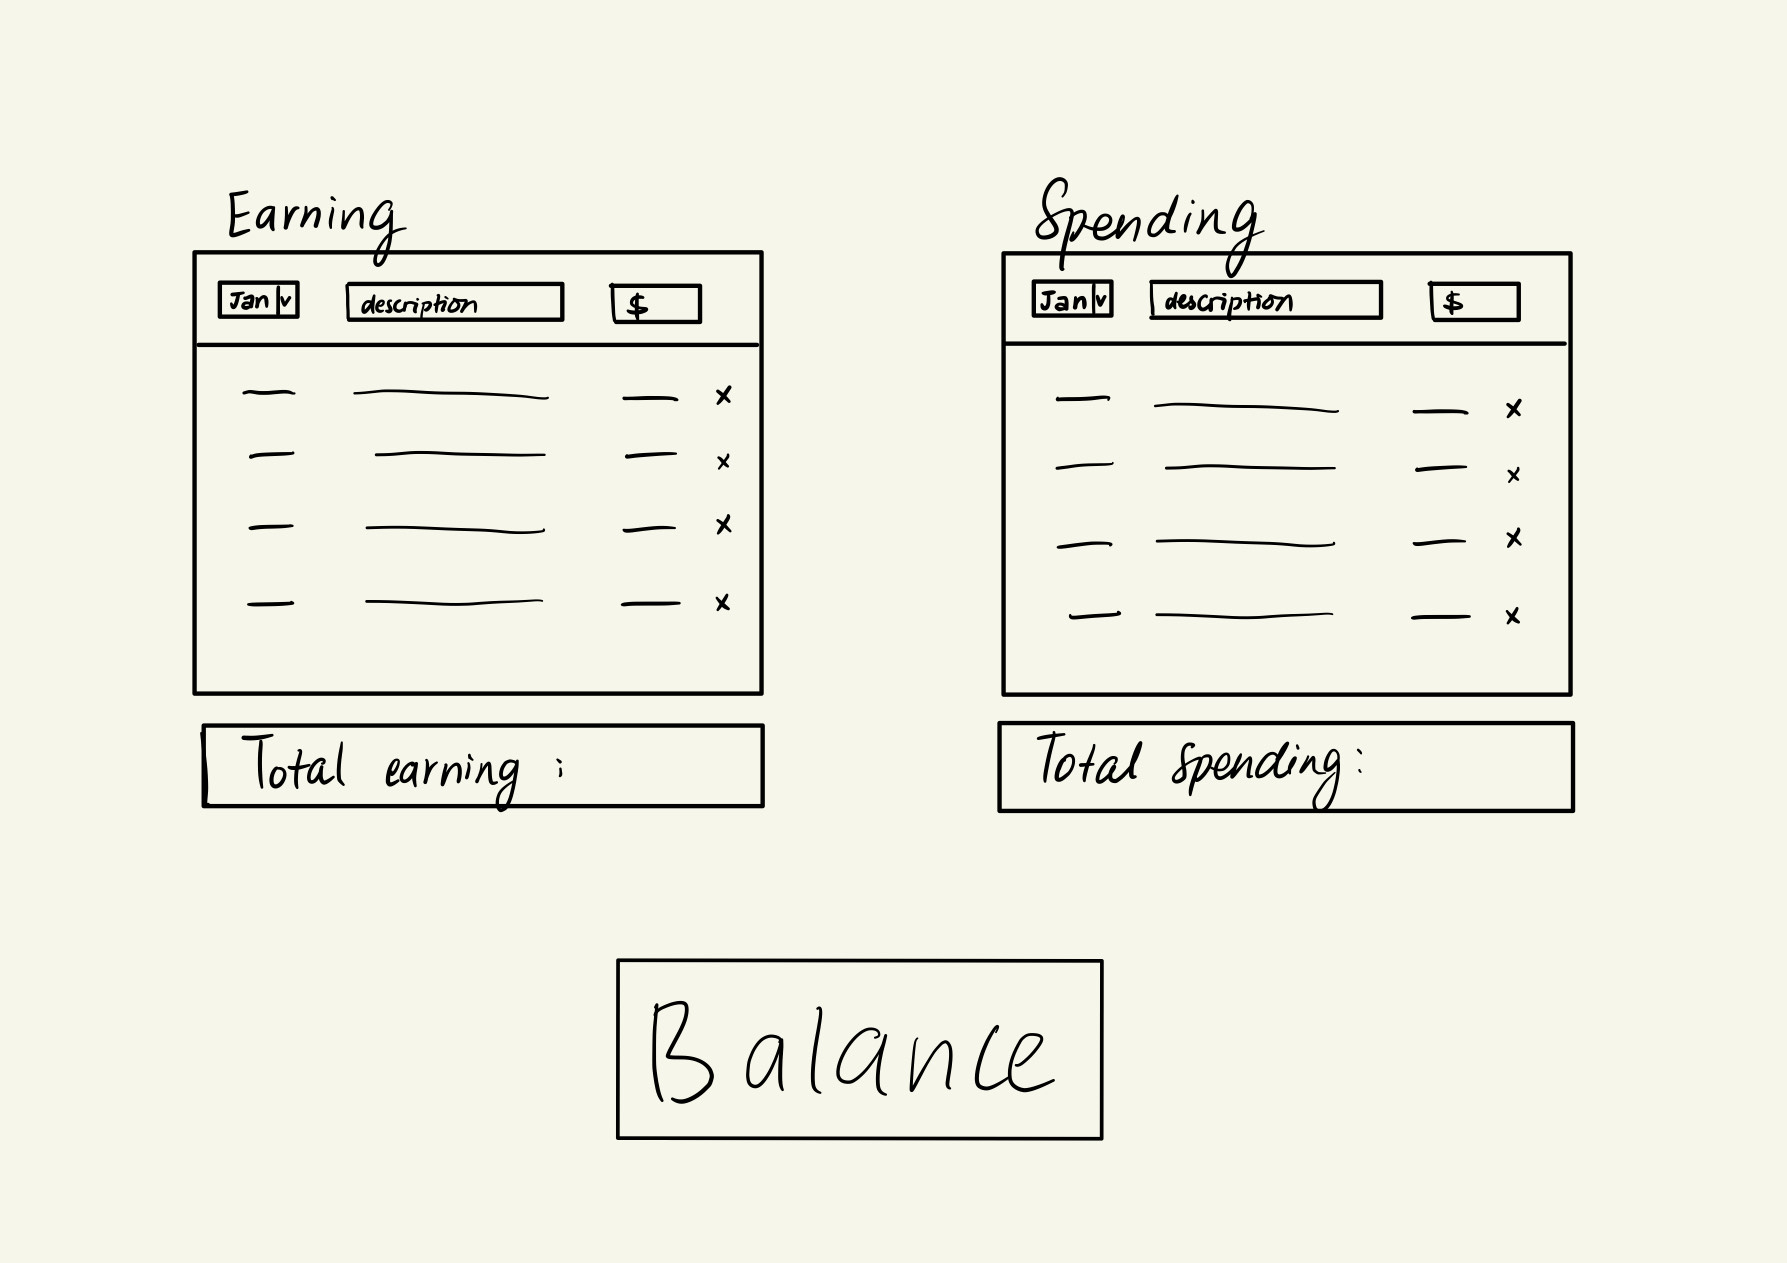 Earning
Jan v description $
x
x
x
x
Total earning :
Spending
Jan v description $
x
x
x
x
Total spending:
Balance